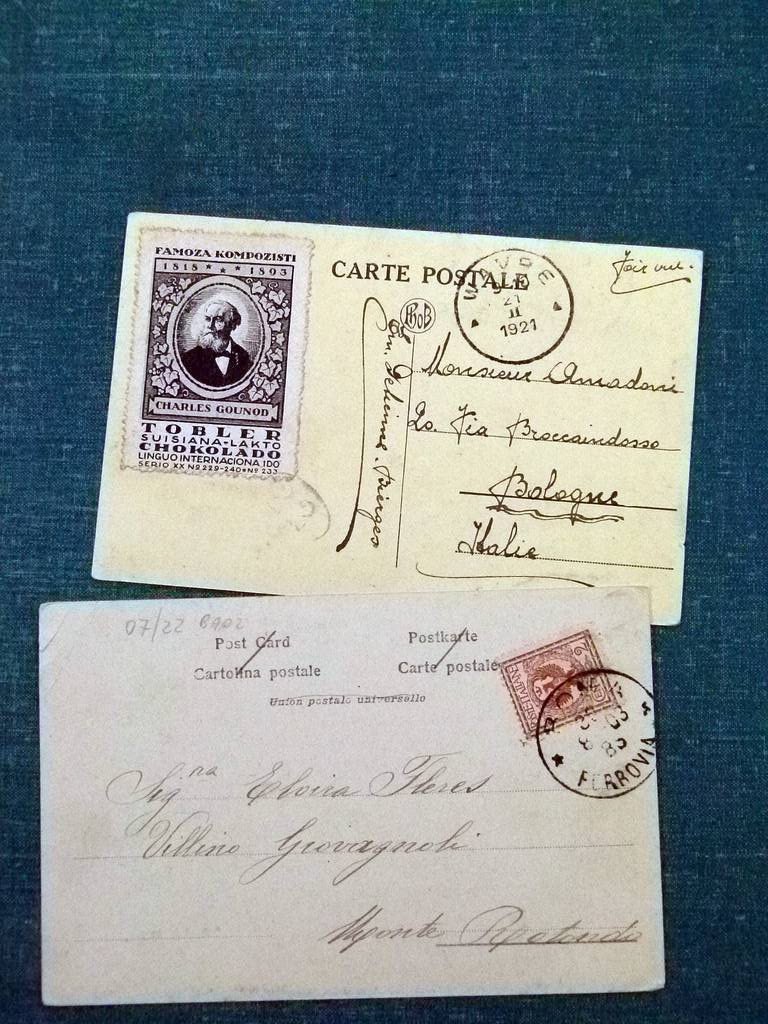 FAMOZA KOMPOZISTI
1818 * * * 1893
CHARLES GOUNOD
TOBLER
SUISIANA-LAKTO
CHOKOLADO
LINGUO INTERNACIONA IDO
SERIO XX Nº 229-240 * Nº 233
CARTE POSTALE
WAVRE
21
II
1921
Monsieur Amadoni
20. Via Broccaindosso
Bologne
Italie
07/22
Post Card
Postkarte
Cartolina postale
Carte postale
Union postale universelle
ROMA
FERROVIA
Signa Elvira Fleres
Villino Giovagnoli
Monte Rotondo